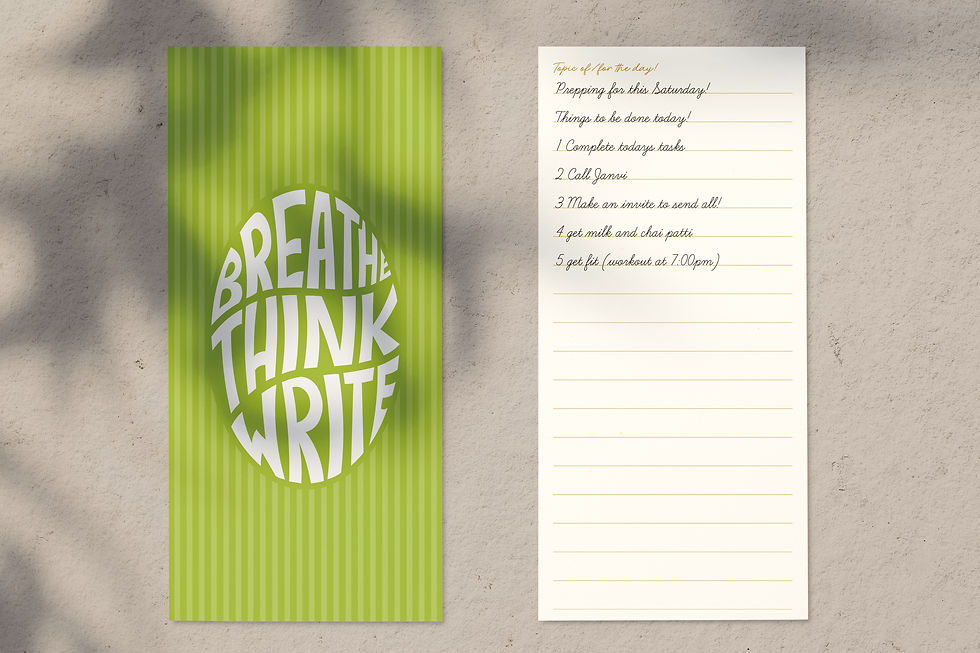 BREATHE
THINK
WRITE
Topic of/for the day!
Prepping for this Saturday!
Things to be done today!
1 Complete todays tasks
2 Call Janvi
3 Make an invite to send all!
4 get milk and chai patti
5 get fit (workout at 7:00pm)